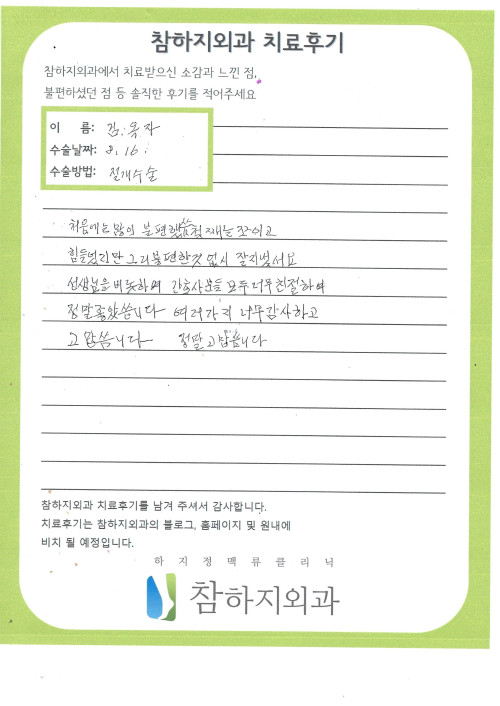 참하지외과 치료후기
참하지외과에서 치료받으신 소감과 느낀 점,
불편하셨던 점 등 솔직한 후기를 적어주세요
이 름: 김. 옥자
수술날짜: 8. 16.
수술방법: 절개수술
처음에는 많이 불편했씀 첫재는
힘들었지만 그리불편한것 없시 잘지냈서요
선생님을 비롯하여 간호사분들 모두너무친절하여
정말좋았씀니다 여러가지 너무감사하고
고맙씀니다 정말고맙씀니다
참하지외과 치료후기를 남겨 주셔서 감사합니다.
치료후기는 참하지외과의 블로그, 홈페이지 및 원내에
비치 될 예정입니다.
하지정맥류클리닉
참하지외과